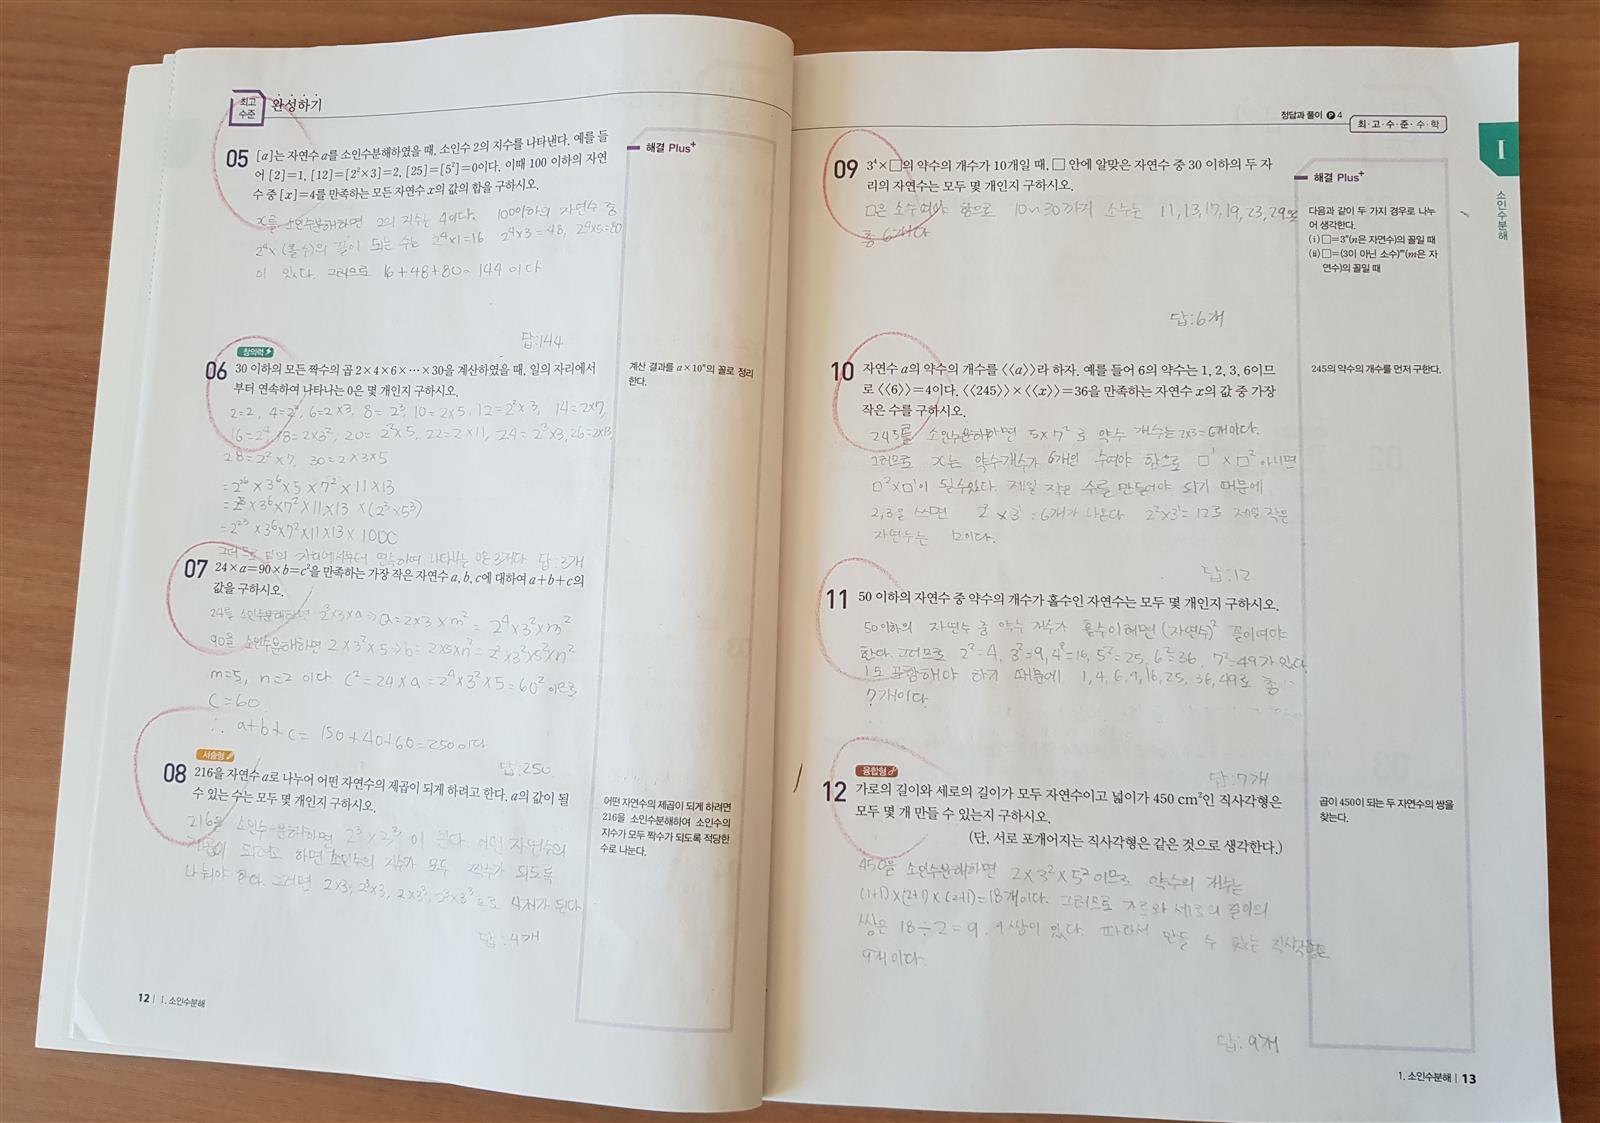 최고
수준
완성하기
05 [a]는 자연수 a를 소인수분해하였을 때, 소인수 2의 지수를 나타낸다. 예를 들
어 [2]=1, [12]=[2²×3]=2, [25]=[5²]=0이다. 이때 100 이하의 자연
수 중 [x]=4를 만족하는 모든 자연수 x의 값의 합을 구하시오.
x를 소인수분해하면 2의 지수는 4이다. 100이하의 자연수 중
2⁴×(홀수)의 꼴이 되는 수는 2⁴×1=16 2⁴×3=48, 2⁴×5=80
이 있다. 그러므로 16+48+80=144이다
답:144
해결 Plus⁺
창의력
06 30 이하의 모든 짝수의 곱 2×4×6×…×30을 계산하였을 때, 일의 자리에서
부터 연속하여 나타나는 0은 몇 개인지 구하시오.
2=2, 4=2², 6=2×3, 8=2³, 10=2×5, 12=2²×3, 14=2×7,
16=2⁴, 18=2×3², 20=2²×5, 22=2×11, 24=2³×3, 26=2×13
28=2²×7, 30=2×3×5
×3⁶×5 ×7²×11×13
×3⁶×7²×11×13 ×(2³×5³)
=2²³×3⁶×7²×11×13×1000
그러므로 일의 자리에서부터 연속하여 나타나는 0은 3개다 답:3개
계산 결과를 a×10ⁿ의 꼴로 정리
한다.
07 24×a=90×b=c²을 만족하는 가장 작은 자연수 a, b, c에 대하여 a+b+c의
값을 구하시오.
24를 소인수분해하면 2³×3×a⇒a=2×3×m²=2⁴×3²×m²
90을 소인수분해하면 2×3²×5⇒b=2×5×n²=2²×3²×5²×n²
m=5, n=2 이다 c²=24×a=2⁴×3²×5=60² 이므로
c=60
∴ a+b+c=150+40+60=250이다
답:250
서술형
08 216을 자연수 a로 나누어 어떤 자연수의 제곱이 되게 하려고 한다. a의 값이 될
수 있는 수는 모두 몇 개인지 구하시오.
216을 소인수분해하면 2³×3³이 된다. 어떤 자연수의
제곱이 되려고 하면 소인수의 지수가 모두 짝수가 되도록
나눠야 한다. 그러면 2×3, 2³×3, 2×3³, 2³×3³으로 4개가 된다.
답:4개
어떤 자연수의 제곱이 되게 하려면
216을 소인수분해하여 소인수의
지수가 모두 짝수가 되도록 적당한
수로 나눈다.
12 | Ⅰ. 소인수분해
정답과 풀이 P 4
최·고·수·준·수·학
Ⅰ
소인수분해
09 3⁴×□의 약수의 개수가 10개일 때, □ 안에 알맞은 자연수 중 30 이하의 두 자
리의 자연수는 모두 몇 개인지 구하시오.
□은 소수여야 함으로 10~30까지 소수는 11,13,17,19,23,29로
총 6개다
답:6개
해결 Plus⁺
다음과 같이 두 가지 경우로 나누
어 생각한다.
(ⅰ) □=3ⁿ(n은 자연수)의 꼴일 때
(ⅱ) □=(3이 아닌 소수)ᵐ(m은 자
연수)의 꼴일 때
10 자연수 a의 약수의 개수를 ⟪a⟫라 하자. 예를 들어 6의 약수는 1, 2, 3, 6이므
로 ⟪6⟫=4이다. ⟪245⟫×⟪x⟫=36을 만족하는 자연수 x의 값 중 가장
작은 수를 구하시오.
245를 소인수분해하면 5×7²로 약수 개수는 2×3=6개이다.
그러므로 x는 약수개수가 6개인 수여야 함으로 □¹×□² 아니면
□²×□¹이 될수있다. 제일 작은 수를 만들어야 되기 때문에
2,3을 쓰면 2²×3¹=6개가 나온다 2²×3¹=12로 제일 작은
자연수는 12이다.
답:12
245의 약수의 개수를 먼저 구한다.
11 50 이하의 자연수 중 약수의 개수가 홀수인 자연수는 모두 몇 개인지 구하시오.
50이하의 자연수 중 약수 개수가 홀수이려면 (자연수)² 꼴이여야
한다. 그러므로 2²=4, 3²=9, 4²=16, 5²=25, 6²=36, 7²=49가 있다.
1도 포함해야 하기 때문에 1,4,6,9,16,25,36,49로 총
7개이다
답:7개
융합형
12 가로의 길이와 세로의 길이가 모두 자연수이고 넓이가 450 cm²인 직사각형은
모두 몇 개 만들 수 있는지 구하시오.
(단, 서로 포개어지는 직사각형은 같은 것으로 생각한다.)
450을 소인수분해하면 2×3²×5²이므로 약수의 개수는
(1+1)×(2+1)×(2+1)=18개이다. 그러므로 가로와 세로의 길이의
쌍은 18÷2=9, 9쌍이 있다. 따라서 만들 수 있는 직사각형은
9개이다.
답:9개
곱이 450이 되는 두 자연수의 쌍을
찾는다.
1. 소인수분해 | 13